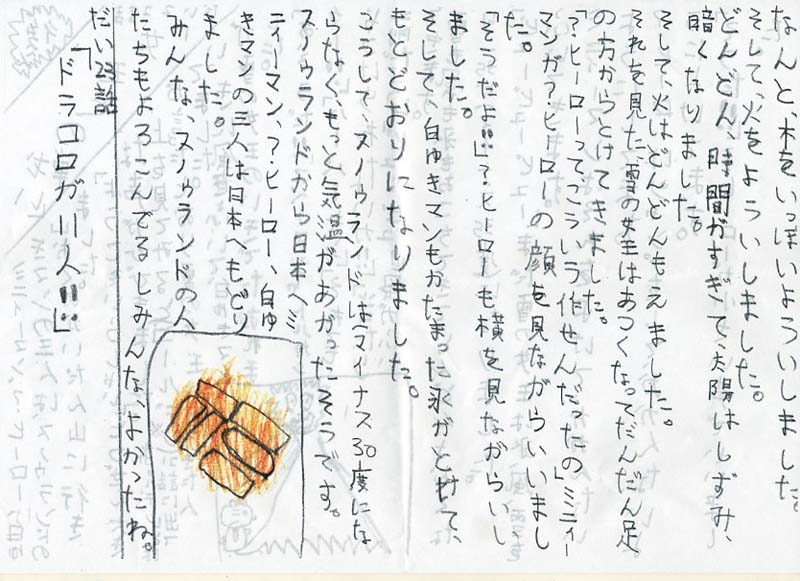 なんと、木をいっぱいようしいしました。
そして、火をよういしました。
どんどん、時間がすぎて、太陽はしずみ、
暗くなりました。
そして、火はどんどんもえました。
それを見た、雪の女王はあつくなってだんだん足
の方からとけてきました。
「?・ヒーローって、こういう作せんだったの」ミニィー
マンが?・ヒーローの顔を見ながらいいまし
た。
「そうだよ!!」?・ヒーローも横を見ながらいい
ました。
そして、白ゆきマンもかたまった氷がとけて、
もとどおりになりました。
こうして、スノゥランドはマイナス30度にな
らなく、もっと気温があがったそうです。
スノゥランドから日本へミ
ニィーマン、?・ヒーロー、白ゆ
きマンの三人は日本へもどり
ました。
みんな、スノゥランドの人
たちもよろこんでるしみんな、よかったね。
だい23話
「ドラコロガ三人!!」